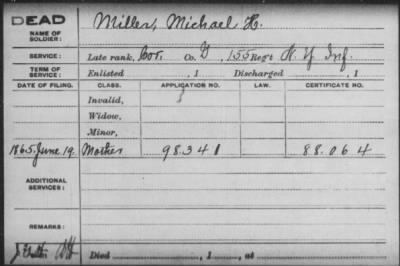 DEAD
NAME OF SOLDIER: Miller, Michael H.
SERVICE: Late rank, Cor, Co. G, 155 Regt N. Y. Inf.
TERM OF SERVICE: Enlisted , 1 Discharged , 1
DATE OF FILING. CLASS. APPLICATION NO. LAW. CERTIFICATE NO.
Invalid,
Widow,
Minor,
1865, June 19. Mother 98.341 88.064
ADDITIONAL SERVICES:
REMARKS:
Died , 1 , at